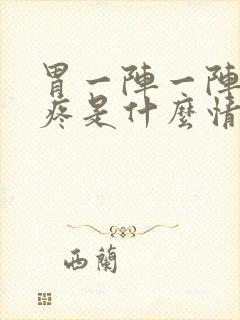 胃一陣一陣
疼是什麼情
西蘭